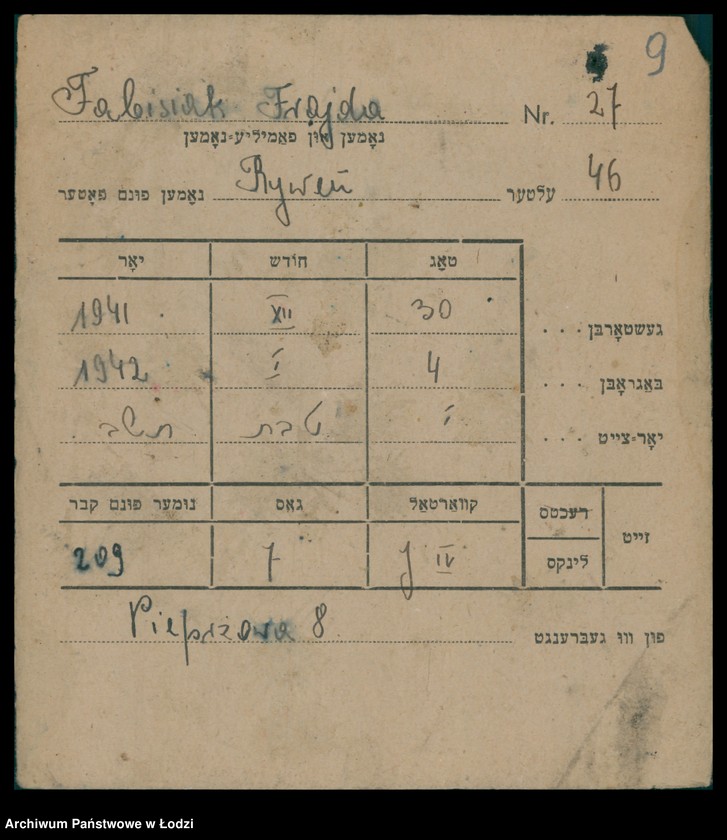 9
Fabisiak Frajda Nr. 27
נאָמען און פאַמיליע-נאָמען
נאָמען פונם פאָטער Rywen עלטער 46
טאַג חודש יאָר
געשטאָרבן . . . 30 XII 1941
באַגראָבן . . . 4 I 1942
יאָר-צייט . . . י טבת תשב
זייט רעכטס קוואַרטאַל גאַס נומער פונם קבר
לינקס IV 7 209
פון וואו געברענגט Pieprzowa 8
Archiwum Państwowe w Łodzi